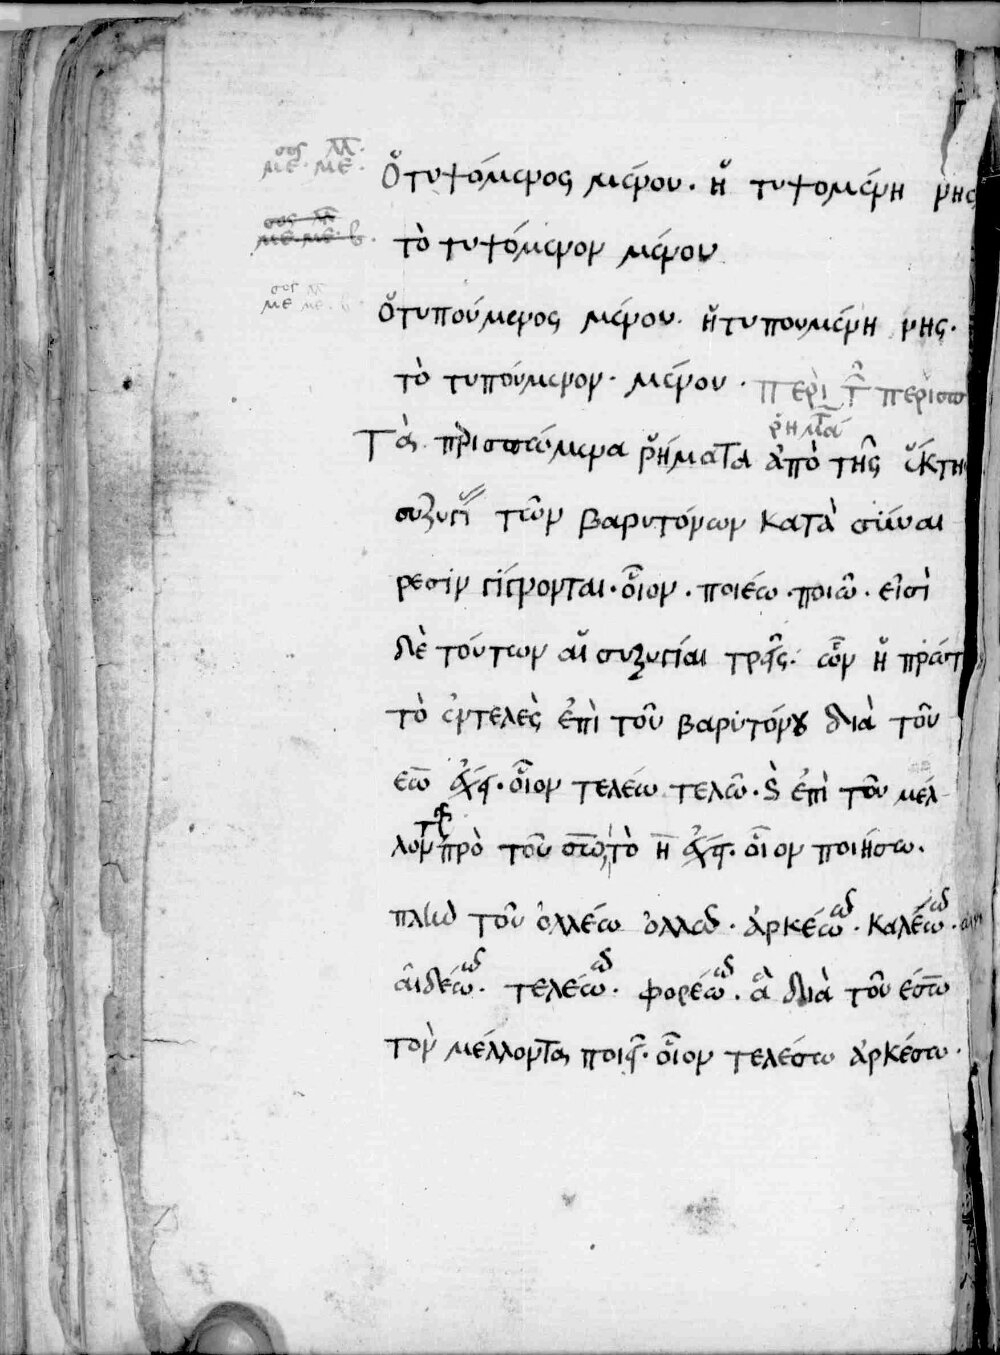 Ὁ τυψόμενος μένου· ἡ τυψομένη νης
τὸ τυψόμενον μένου
Ὁ τυπούμενος μένου· ἡ τυπουμένη νης·
τὸ τυπούμενον· μένου· Περὶ τ περισπω
ῥημτα
Τὰ πρισπώμενα ῥήματα ἀπὸ τῆς ἕκτη
συζυγι τῶν βαρυτόνων κατὰ συναι
ρεσιν γίγνονται· οἷον· ποιέω· ποιῶ· εἰσὶ
δὲ τούτων αἱ συζυγίαι τρεῖς· ὧν ἡ πρώτ
τὸ ἐντελὲς ἐπὶ τοῦ βαρυτόνου διὰ τοῦ
εω ἔχει· οἷον τελέω τελῶ· καὶ ἐπὶ τοῦ μέλ
λοντ πρὸ τοῦ σω τὸ η ἔχει· οἷον ποιήσω·
πλὴν τοῦ ὀλλέω ὀλλῶ· ἀρκέω ῶ· καλέω ῶ·
αἰδέω ῶ· τελέω ῶ· φορέω ῶ· ἃ διὰ τοῦ έσω
τὸν μέλλοντα ποιεῖ· οἷον τελέσω ἀρκέσω·